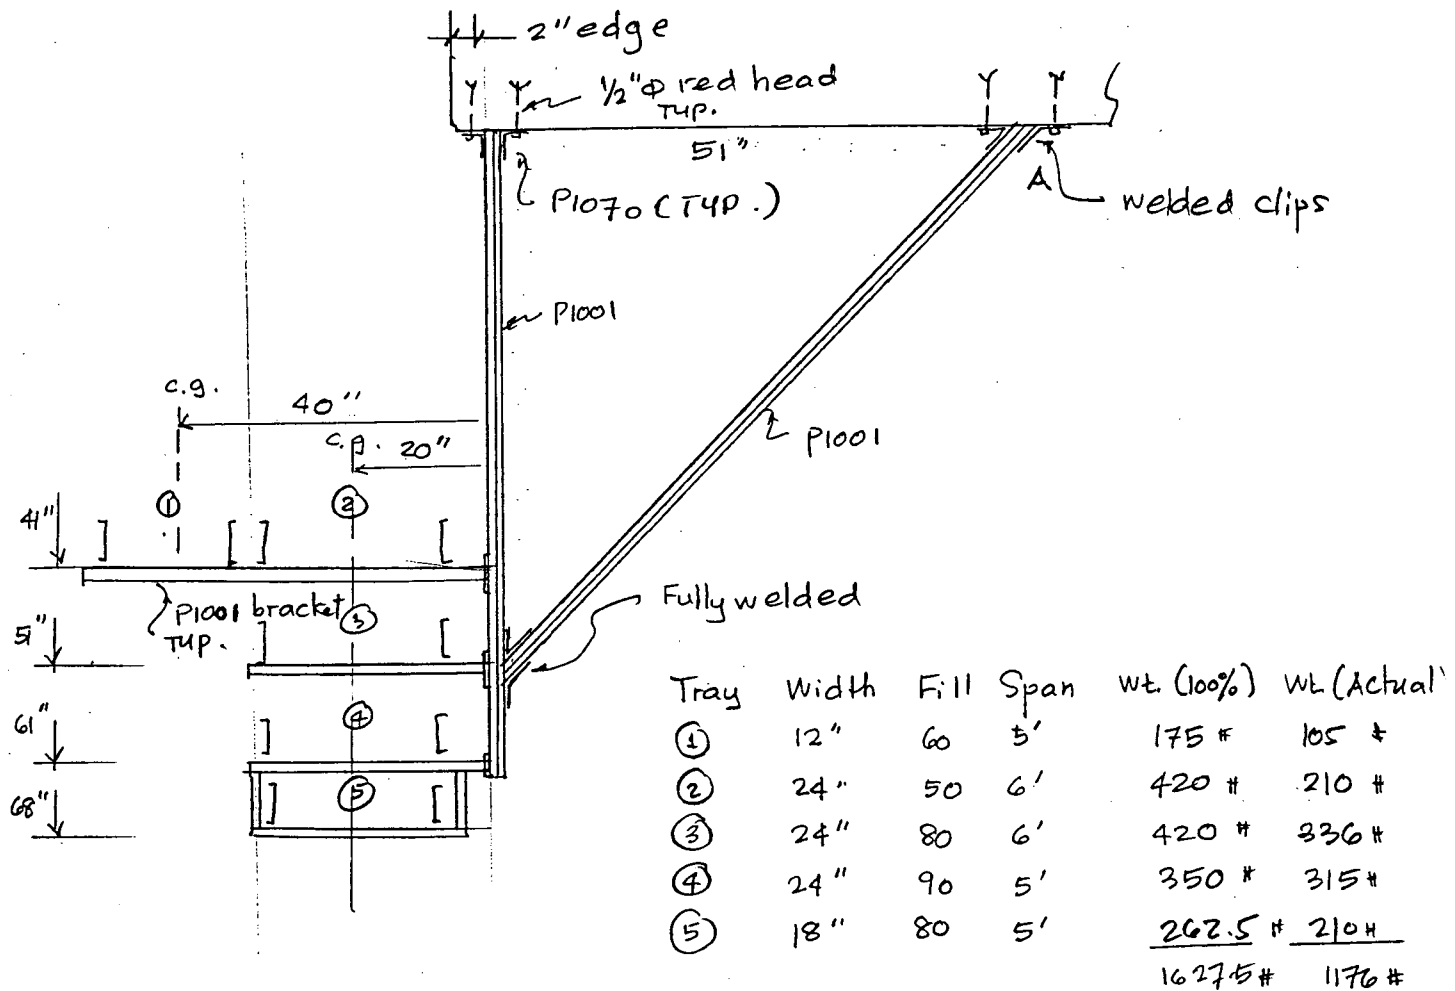 2" edge
1/2"Φ red head
TYP.
51"
P1070 (TYP.)
A
welded clips
P1001
c.g.
40"
c.g. 20"
P1001
1
2
41"
P1001 bracket
TYP.
3
Fully welded
51"
4
61"
5
68"
Tray Width Fill Span Wt. (100%) Wt. (Actual)
1 12" 60 5' 175 # 105 #
2 24" 50 6' 420 # 210 #
3 24" 80 6' 420 # 336 #
4 24" 90 5' 350 # 315 #
5 18" 80 5' 262.5 # 210 #
1627.5 # 1176 #